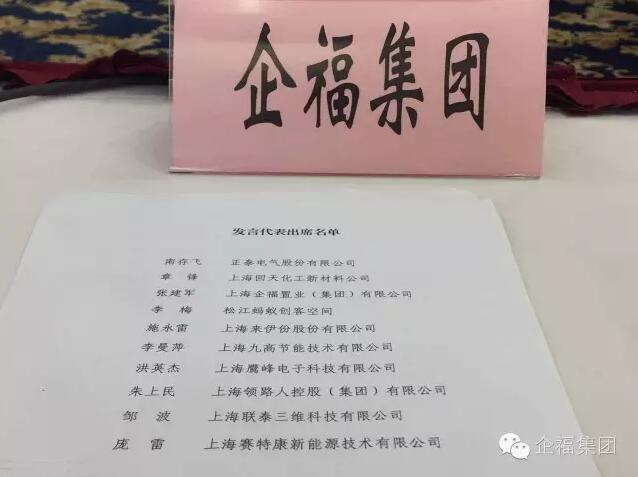 企福集团
发言代表出席名单
南存飞 正泰电气股份有限公司
章 锋 上海回天化工新材料公司
张建军 上海企福置业（集团）有限公司
李 梅 松江蚂蚁创客空间
施永雷 上海来伊份股份有限公司
李曼萍 上海九高节能技术有限公司
洪英杰 上海鹰峰电子科技有限公司
朱上民 上海领路人控股（集团）有限公司
邹 波 上海联泰三维科技有限公司
庞 雷 上海赛特康新能源技术有限公司
企福集团